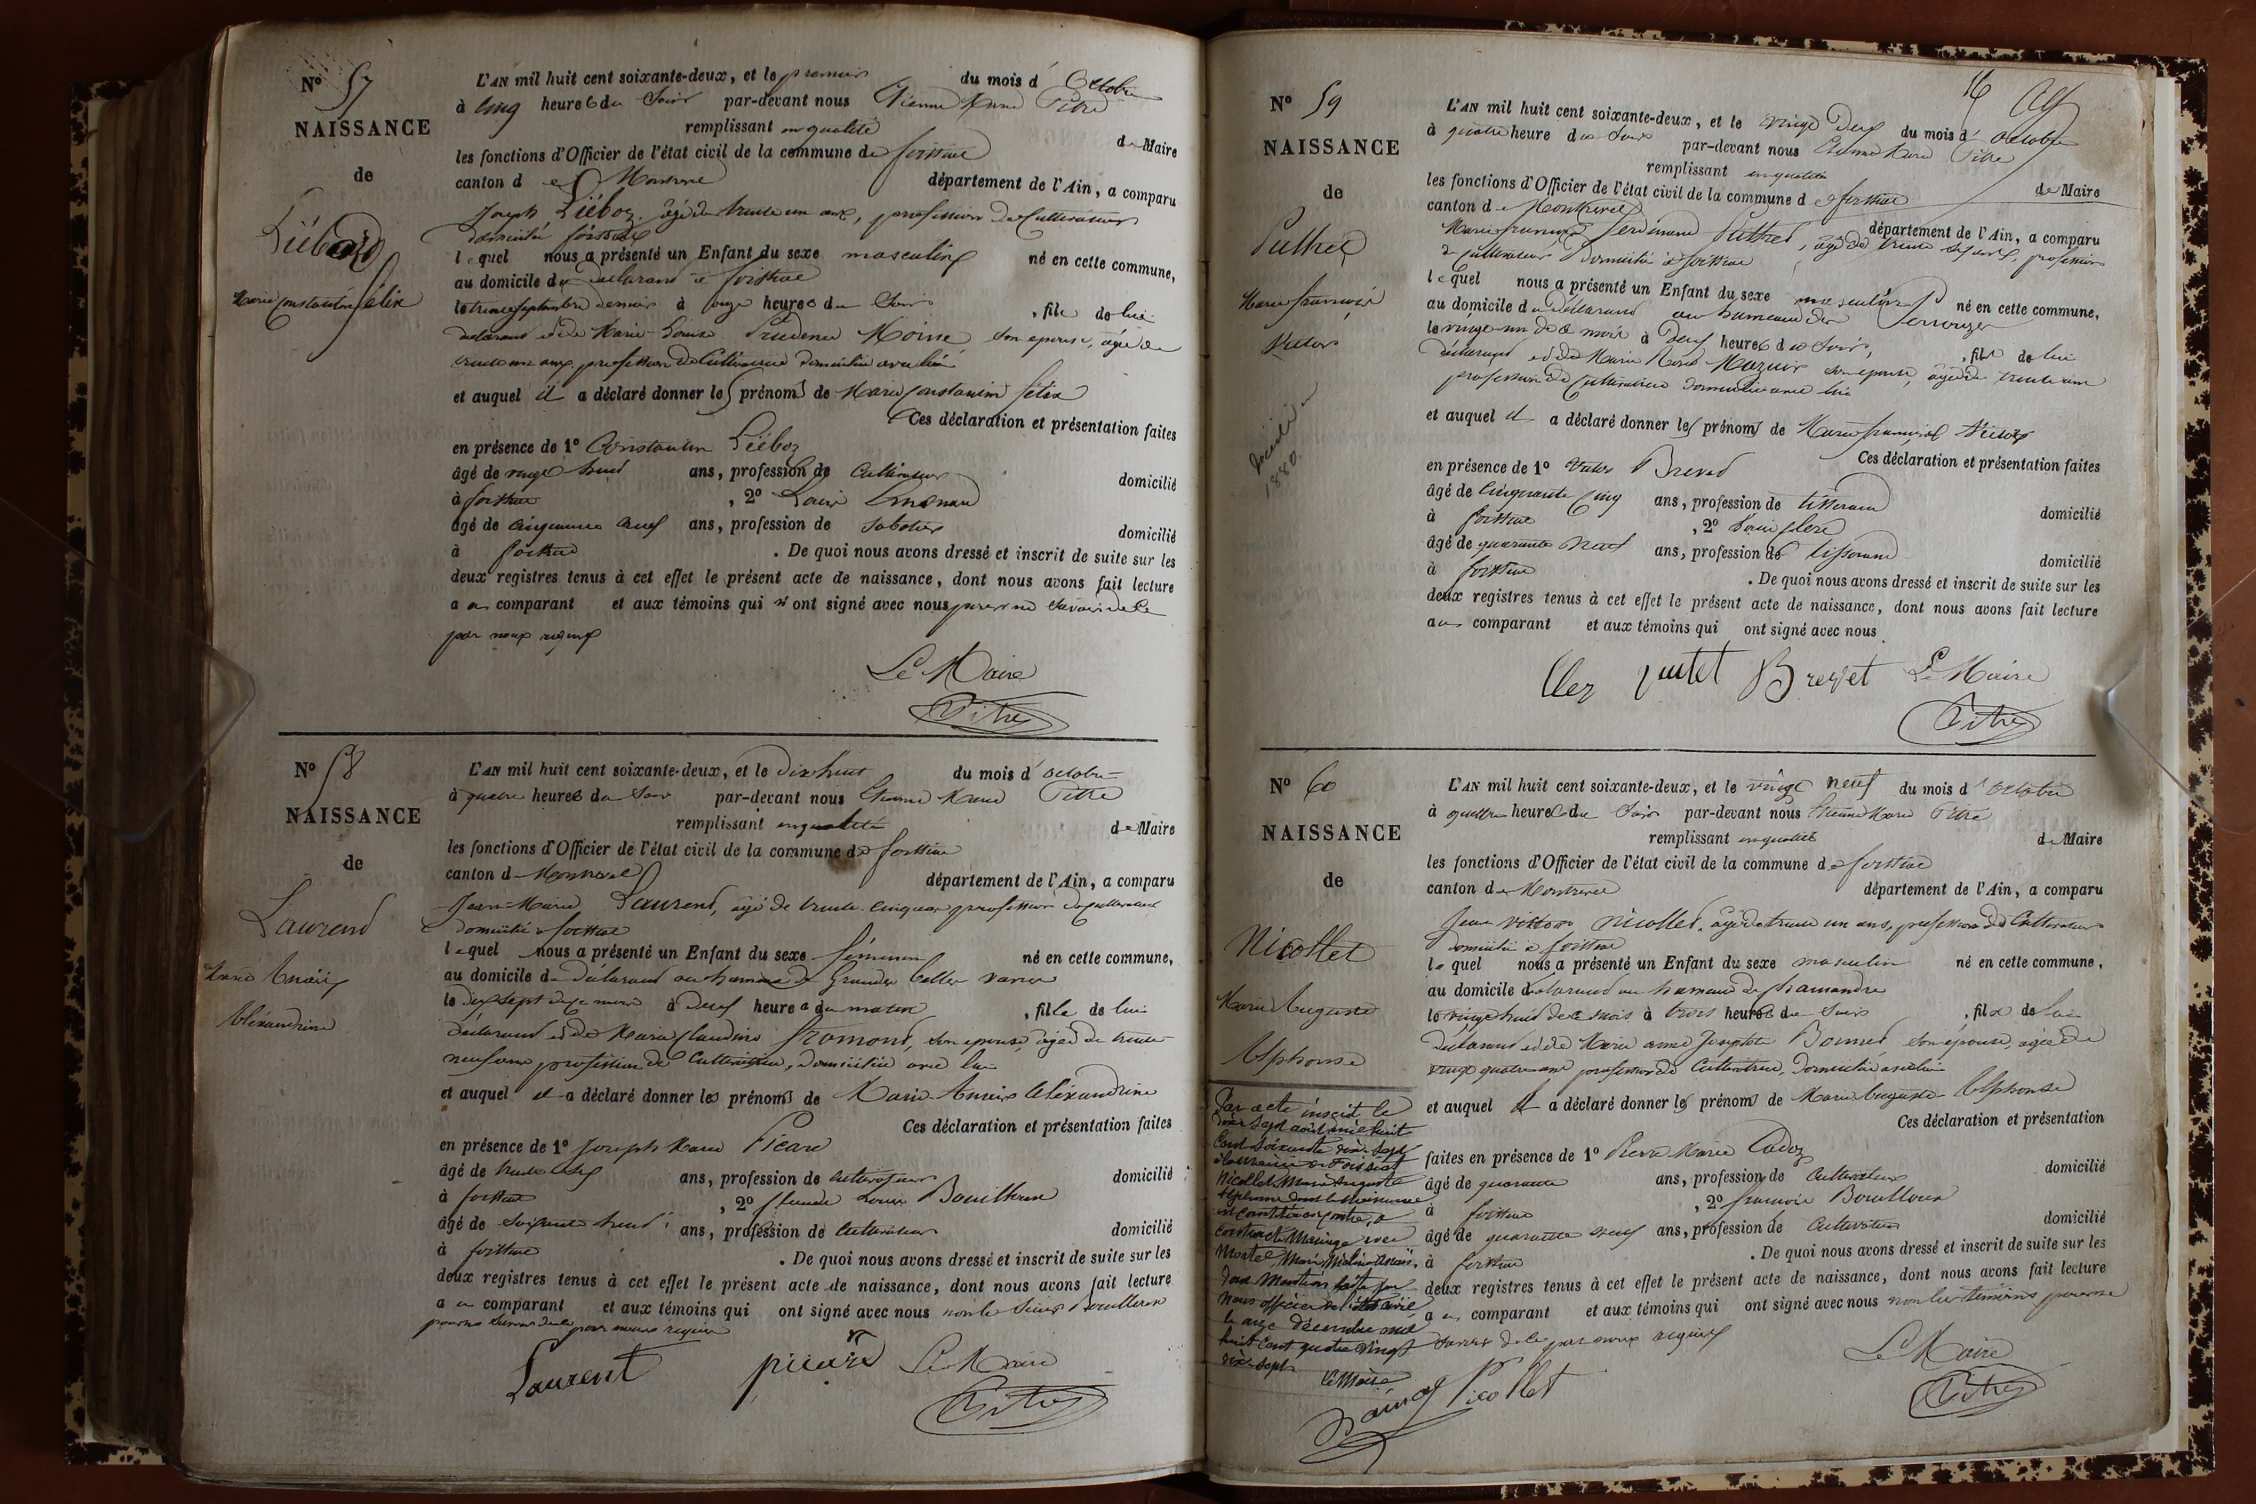 N° 57
NAISSANCE
de
Liéboz
Marie Constantin Félix
L'AN mil huit cent soixante-deux, et le premier du mois d' Octobre
à cinq heures du Soir par-devant nous Etienne Marie Pitre
remplissant en qualité de Maire
les fonctions d'Officier de l'état civil de la commune de foissiat
canton de Montrevel département de l'Ain, a comparu
Joseph Liéboz, âgé de trente un ans, profession de Cultivateur
domicilié à foissiat
lequel nous a présenté un Enfant du sexe masculin né en cette commune,
au domicile du déclarant à foissiat
le trente septembre dernier à onze heures du Soir, fils de lui
déclarant et de Marie Louise Prudence Moine son epouse, âgée de
trente un ans profession de Cultivatrice domiciliée avec lui
et auquel il a déclaré donner les prénoms de Marie Constantin félix
Ces déclaration et présentation faites
en présence de 1° Constantin Liéboz
âgé de vingt huit ans, profession de Cultivateur domicilié
à foissiat, 2° Louis
âgé de cinquante neuf ans, profession de Sabotier domicilié
à foissiat. De quoi nous avons dressé et inscrit de suite sur les
deux registres tenus à cet effet le présent acte de naissance, dont nous avons fait lecture
au comparant et aux témoins qui n'ont signé avec nous pour ne savoir de ce
par nous requis
Le Maire
Pitre
N° 58
NAISSANCE
de
Laurent
Marie Anaïs
Alexandrine
L'AN mil huit cent soixante-deux, et le dix huit du mois d' octobre
à quatre heures du Soir par-devant nous Etienne Marie Pitre
remplissant en qualité de Maire
les fonctions d'Officier de l'état civil de la commune de foissiat
canton de Montrevel département de l'Ain, a comparu
Jean-Marie Laurent, âgé de trente cinq ans, profession de Cultivateur
domicilié à foissiat
lequel nous a présenté un Enfant du sexe féminin né en cette commune,
au domicile du déclarant au hameau de Grandes Belles
le dix sept de ce mois à deux heures du matin, fille de lui
déclarant et de Marie Claudine fromont, son epouse, âgée de trente
neuf ans profession de Cultivatrice, domiciliée avec lui
et auquel il a déclaré donner les prénoms de Marie Anaïs Alexandrine
Ces déclaration et présentation faites
en présence de 1° Joseph Marie Picard
âgé de trente ans, profession de cultivateur domicilié
à foissiat, 2° Claude Louis Bouilloux
âgé de Soixante huit ans, profession de Cultivateur domicilié
à foissiat. De quoi nous avons dressé et inscrit de suite sur les
deux registres tenus à cet effet le présent acte de naissance, dont nous avons fait lecture
au comparant et aux témoins qui ont signé avec nous non le Sieur Bouilloux
pour ne savoir de ce par nous requis
Laurent picard Le Maire
Pitre
16
N° 59
NAISSANCE
de
Puthet
Marie françois
Victor
1880
L'AN mil huit cent soixante-deux, et le vingt Deux du mois d' octobre
à quatre heures du Soir par-devant nous Etienne Marie Pitre
remplissant en qualité de Maire
les fonctions d'Officier de l'état civil de la commune de foissiat
canton de Montrevel département de l'Ain, a comparu
Marie françois ferdinand Puthet, âgé de trente six ans, profession
de cultivateur domicilié à foissiat
lequel nous a présenté un Enfant du sexe masculin né en cette commune,
au domicile du déclarant au hameau des Perrouzes
le vingt un de ce mois à Deux heures du Soir, fils de lui
déclarant et de Marie Mazuir son epouse, âgée de trente un
profession de Cultivatrice domiciliée avec lui
et auquel il a déclaré donner les prénoms de Marie françois Victor
Ces déclaration et présentation faites
en présence de 1° Victor Brevet
âgé de Cinquante cinq ans, profession de tisserand domicilié
à foissiat, 2° Louis Clere
âgé de quarante neuf ans, profession de tisserand domicilié
à foissiat. De quoi nous avons dressé et inscrit de suite sur les
deux registres tenus à cet effet le présent acte de naissance, dont nous avons fait lecture
au comparant et aux témoins qui ont signé avec nous
Cler putet Brevet Le Maire
Pitre
N° 60
NAISSANCE
de
Nicollet
Marie Auguste
Alphonse
Par acte inscrit le
dix sept août mil huit
Cent soixante dix-sept
à la mairie de Foissiat
Nicollet Marie Auguste
Alphonse dont la Naissance
est constatée ci-contre, a
contracté Mariage avec
Martel, Marie Mélanie Anaïs.
dont Mention faite par
Nous officier de l'état civil
le onze Décembre mil
huit cent quatre vingt
dix-sept.
Le Maire
L'AN mil huit cent soixante-deux, et le vingt neuf du mois d' octobre
à quatre heures du Soir par-devant nous Etienne Marie Pitre
remplissant en qualité de Maire
les fonctions d'Officier de l'état civil de la commune de foissiat
canton de Montrevel département de l'Ain, a comparu
Jean Victor Nicollet, âgé de trente un ans, profession de Cultivateur
domicilié à foissiat
lequel nous a présenté un Enfant du sexe masculin né en cette commune,
au domicile déclarant au hameau de Chamandre
le vingt huit de ce mois à trois heures du Soir, fils de lui
déclarant et de Marie anne Josephte Bonnet son épouse, âgée de
vingt quatre ans profession de Cultivatrice, domiciliée avec lui
et auquel il a déclaré donner les prénoms de Marie Auguste Alphonse
Ces déclaration et présentation
faites en présence de 1° Pierre Marie Cadoz
âgé de quarante ans, profession de Cultivateur domicilié
à foissiat, 2° françois Bouilloux
âgé de quarante neuf ans, profession de Cultivateur domicilié
à foissiat. De quoi nous avons dressé et inscrit de suite sur les
deux registres tenus à cet effet le présent acte de naissance, dont nous avons fait lecture
au comparant et aux témoins qui ont signé avec nous non les témoins pour ne
savoir de ce par nous requis
Nicollet Le Maire
Pitre